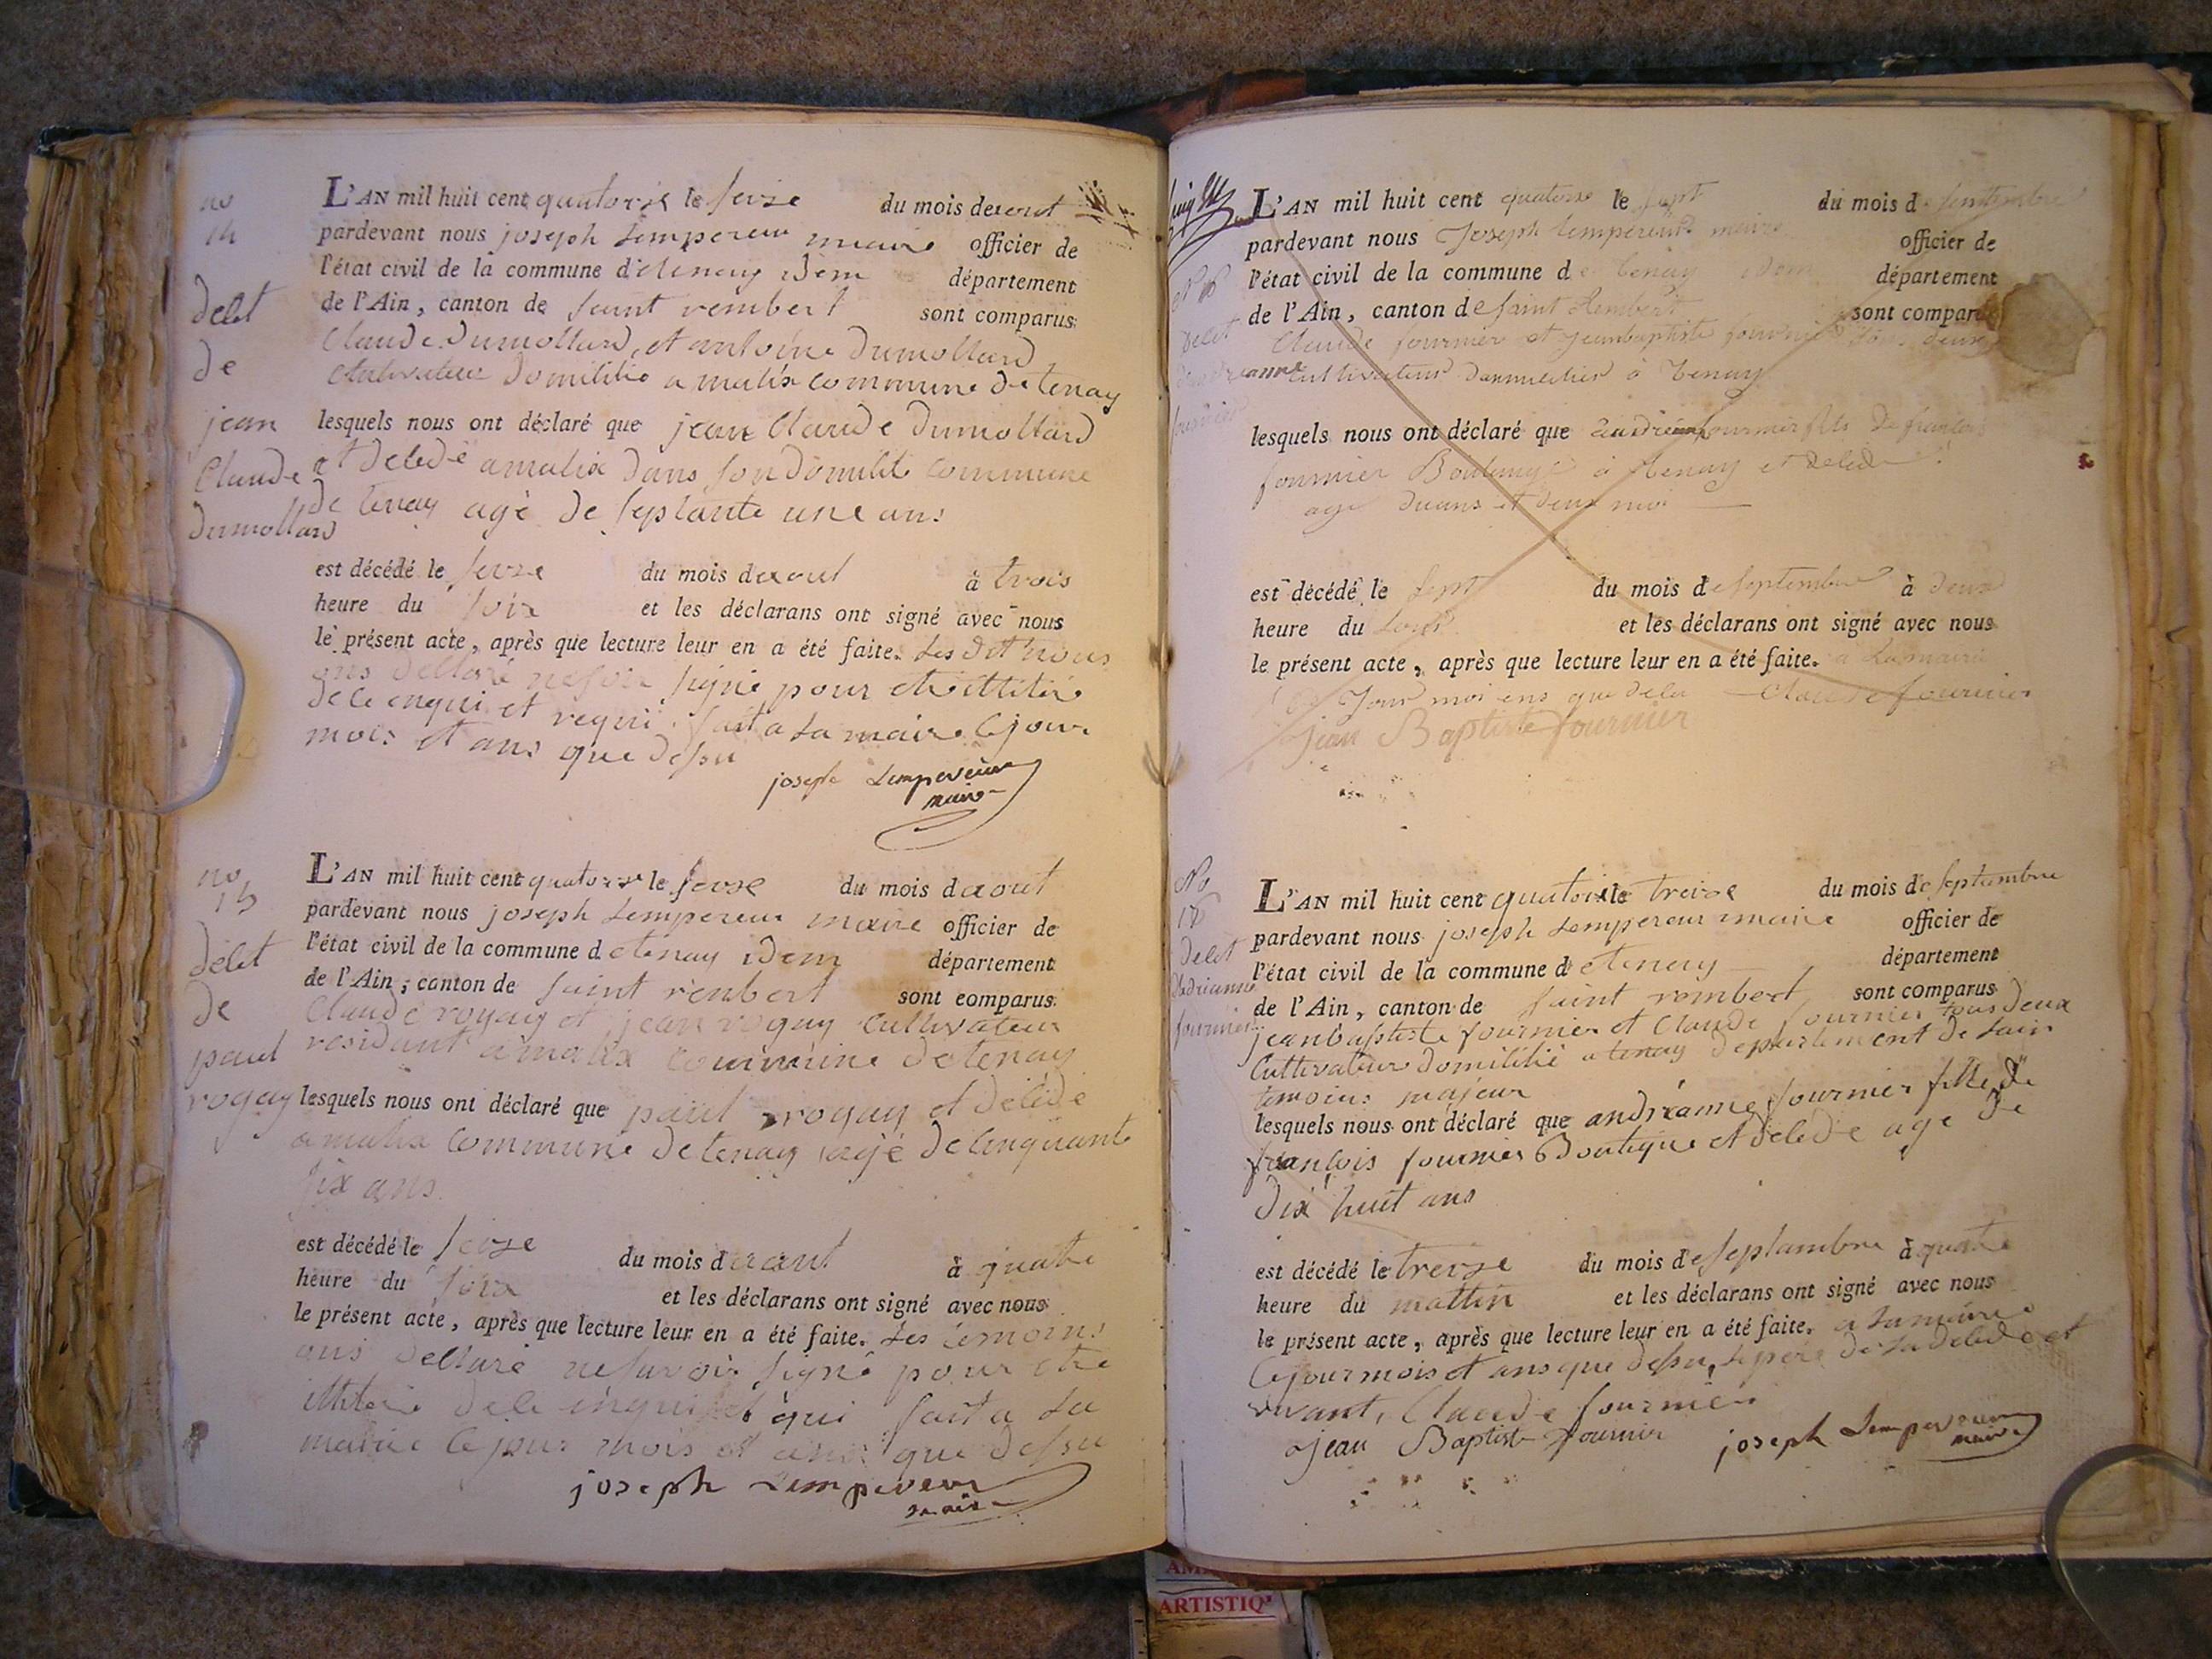 no
14
delet
de
jean
Claude
dumollard
L'AN mil huit cent quatorze le seize du mois de aout
pardevant nous joseph Lempereur maire officier de
l'état civil de la commune d etenay idem département
de l'Ain, canton de saint rembert sont comparus
Claude dumollard, et antoine dumollard
Cultivateur domicilié a malix commune de tenay
lesquels nous ont déclaré que jean Claude dumollard
et dcledé a malix dans son domicile commune
de tenay agé de septante une ans
est décédé le seize du mois d aout à trois
heure du soir et les déclarans ont signé avec nous
le présent acte, après que lecture leur en a été faite. Les dit nous
ons declaré ne savoir signé pour etre ittitéré
de ce enqui et requi. fait a La mairie le jour
mois et ans que dessu
joseph Lempereur
maire
no
15
delet
de
paul
rogay
L'AN mil huit cent quatorze le seize du mois d aout
pardevant nous joseph Lempereur maire officier de
l'état civil de la commune d etenay idem département
de l'Ain, canton de saint renbert sont comparus
Claude rogay et jean rogay Cultivateur
residant a malix commune de tenay
lesquels nous ont déclaré que paul rogay et dcledé
a malix commune de tenay agé de cinquante
six ans
est décédé le seize du mois d aout à quatre
heure du soir et les déclarans ont signé avec nous
le présent acte, après que lecture leur en a été faite. Les temoins
ons declaré ne savoir signé pour etre
de ce enqui et qui fait a La
mairie le jour mois et ans que dessu
joseph Lempereur
maire
No 16
delet
fournier
L'AN mil huit cent quatorze le sept du mois de septembre
pardevant nous Joseph Lempereur maire officier de
l'état civil de la commune de tenay idem département
de l'Ain, canton de saint Rembert sont comparus
Claude fournier et jeanbaptiste fournier deux
cultivateur domicilies à Tenay
lesquels nous ont déclaré que andréanne fournier fils de francois
fournier à tenay et deledé
age duans et deux moi
est décédé le sept du mois de septembre à deux
heure du soir et les déclarans ont signé avec nous
le présent acte, après que lecture leur en a été faite. a La mairie
Jour moi ens que desu Claude fournier
jean Baptiste fournier
No
delet
fournier
L'AN mil huit cent quatorze le treize du mois de septembre
pardevant nous joseph Lempereur maire officier de
l'état civil de la commune de tenay département
de l'Ain, canton de saint rembert sont comparus
jeanbaptiste fournier et Claude fournier tous deux
Cultivateur domicilié a tenay departement de Lain
temoins majeur
lesquels nous ont déclaré que andréanne fournier fille de
francois fournier et deledé age de
dix huit ans
est décédé le treize du mois de septambre à quatre
heure du mattin et les déclarans ont signé avec nous
le présent acte, après que lecture leur en a été faite. a La mairie
le jour mois et ans que dessu, le pere de La deledé et
vivant, Claude fournier
jean Baptiste fournier joseph Lempereur
maire
ARTISTIQ'